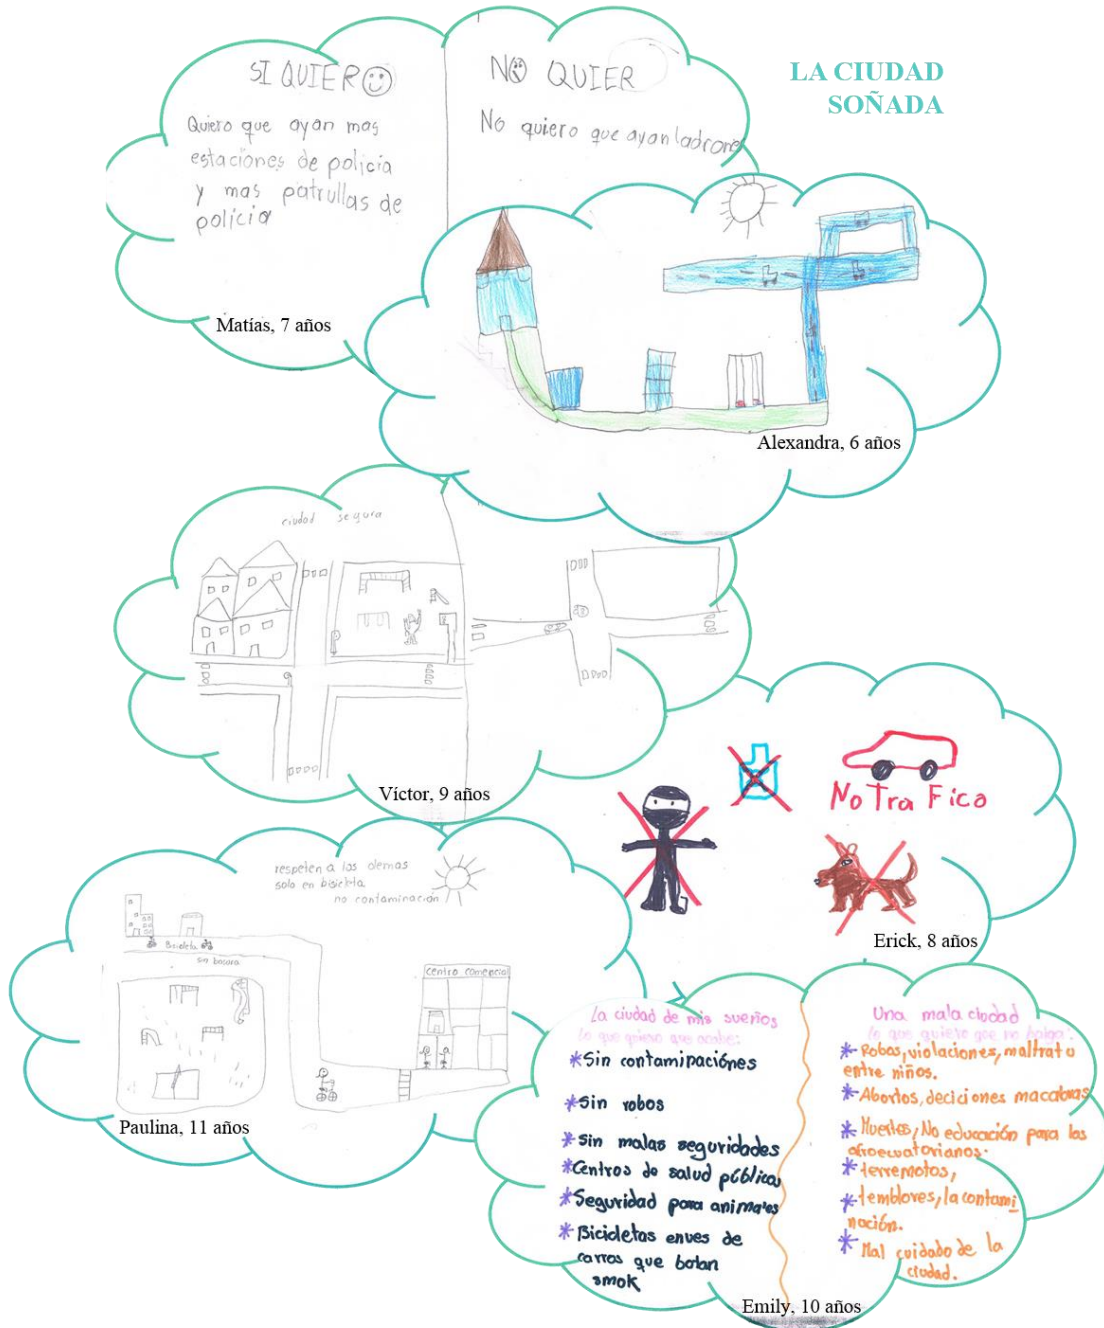 LA CIUDAD
SOÑADA
SI QUIERO
Quiero que ayan mas
estaciones de policía
y mas patrullas de
policia
NO QUIER
No quiero que ayan ladrones
Matías, 7 años
Alexandra, 6 años
ciudad segura
Víctor, 9 años
No Tra Fico
Erick, 8 años
respeten a las demas
solo en bisicleta
no contaminación
Bicicleta
sin basura
centro comercial
Paulina, 11 años
La ciudad de mis sueños
lo que quiero que acabe:
*Sin contaminaciónes
*Sin robos
*Sin malas seguridades
*Centros de salud públicos
*Seguridad para animales
*Bicicletas enves de
carros que botan
smok
Una mala ciudad
lo que quiero que no haiga:
*Robos, violaciones, maltrato
entre niños.
*Abortos, deciciones macabras
*Muertes, No educación para los
afroecuatorianos.
*terremotos,
*temblores, la contami
nación.
*Mal cuidado de la
ciudad.
Emily, 10 años